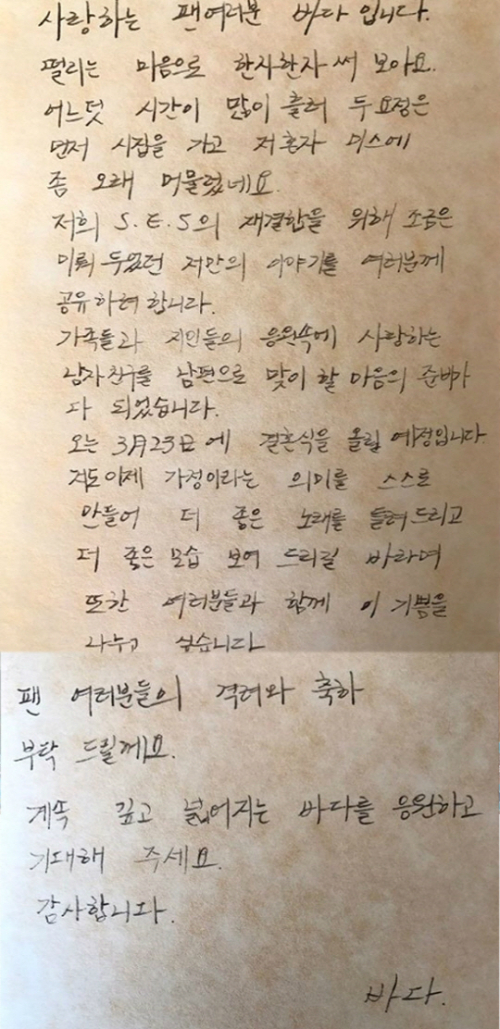 사랑하는 팬여러분 바다입니다.
떨리는 마음으로 한자한자 써 보아요.
어느덧 시간이 많이 흘러 두 요정은
먼저 시집을 가고 저혼자 미스에
좀 오래 머물렀네요.
저희 S.E.S의 재결합을 위해 조금은
미뤄 두었던 저만의 이야기를 여러분께
공유하려 합니다.
가족들과 지인들의 응원속에 사랑하는
남자친구를 남편으로 맞이 할 마음의 준비가
다 되었습니다.
오는 3月23日에 결혼식을 올릴 예정입니다
저도이제 가정이라는 의미를 스스로
만들어 더 좋은 노래를 들려드리고
더 좋은 모습 보여 드리길 바라며
또한 여러분들과 함께 이 기쁨을
나누고 싶습니다
팬 여러분들의 격려와 축하
부탁 드릴께요.
계속 깊고 넓어지는 바다를 응원하고
기대해 주세요.
감사합니다.
바다.